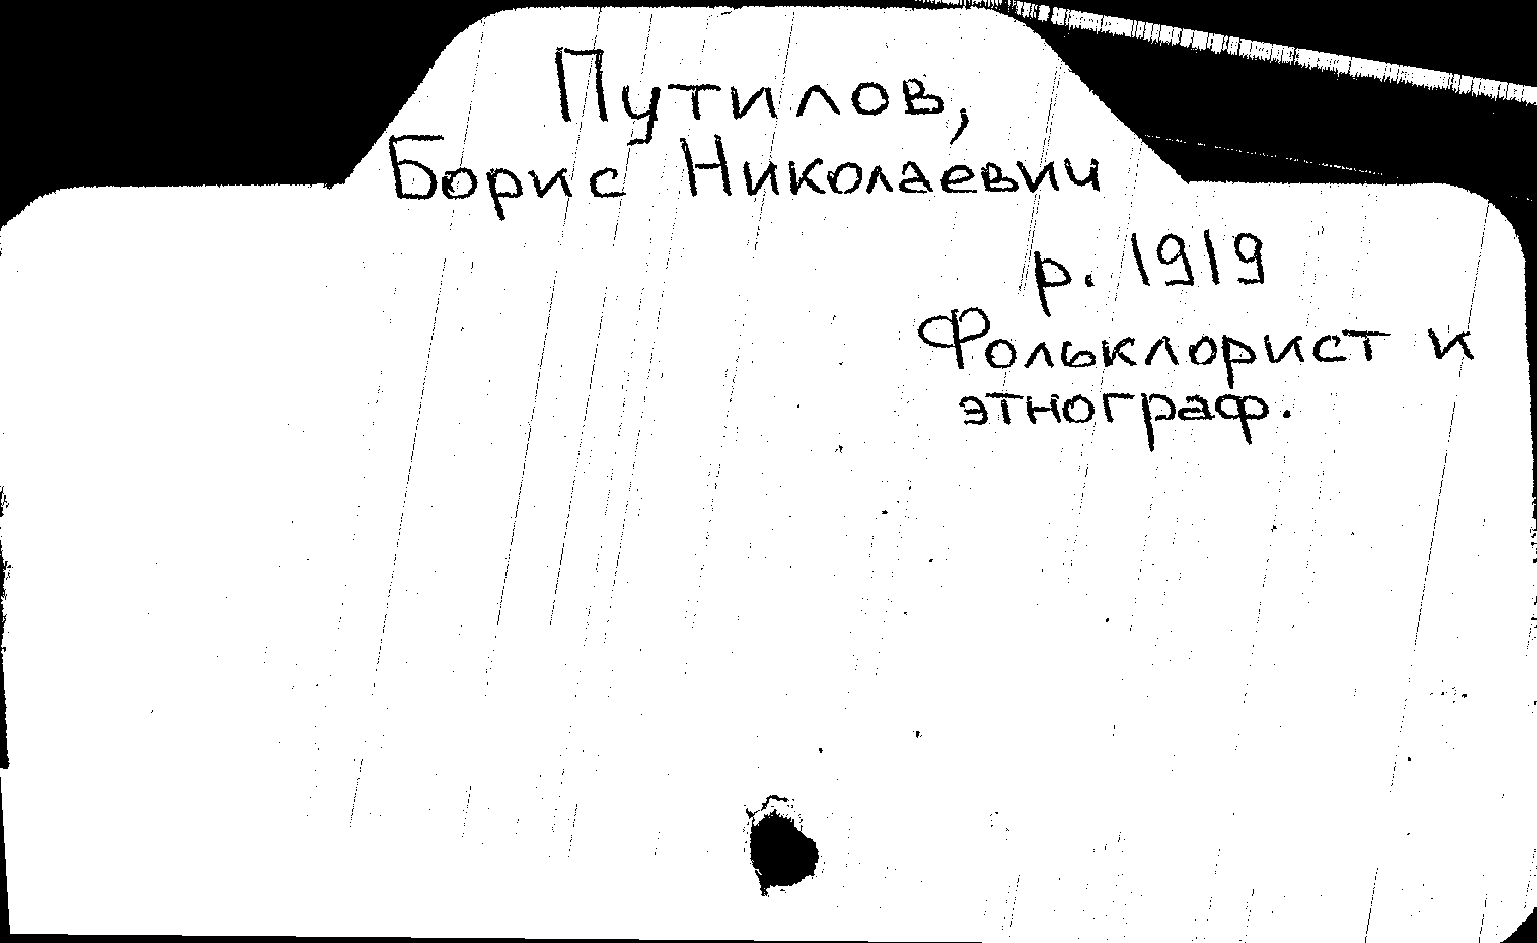 Путилов,
Борис Николаевич
р. 1919
Фольклорист и
этнограф.